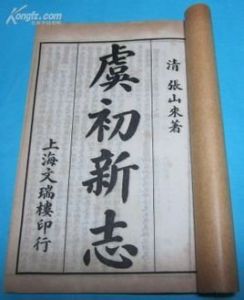 Kongfz.com
清 張山來著
虞初新志
上海文瑞樓印行